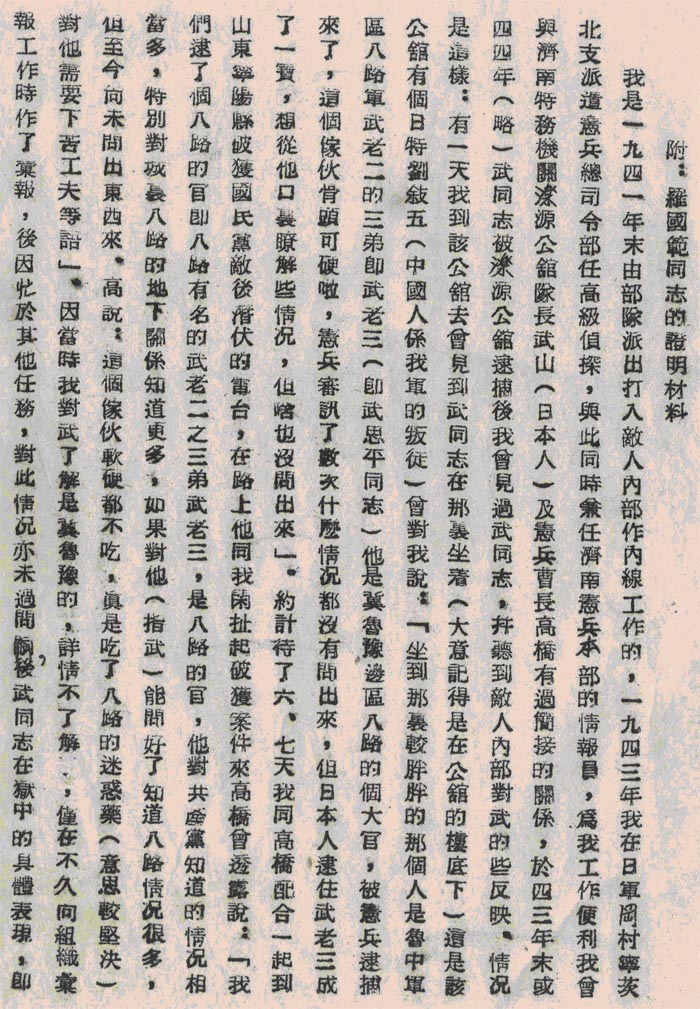 附：羅國範同志的證明材料
我是一九四一年末由部隊派出打入敵人內部作內線工作的，一九四三年我在日軍岡村寧茨
北支派遣憲兵總司令部任高級偵探，與此同時兼任濟南憲兵本部的情報員，爲我工作便利我會
與濟南特務機關濼源公舘隊長武山（日本人）及憲兵曹長高橋有過簡接的關係，於四三年末或
四四年（略）武同志被濼源公舘逮捕後我曾見過武同志，幷聽到敵人內部對武的些反映、情況
是這樣：有一天我到該公舘去曾見到武同志在那裏坐着（大意記得是在公舘的樓底下）這是該
公舘有個日特劉敍五（中國人係我軍的叛徒）曾對我說：「坐到那裏較胖胖的那個人是魯中軍
區八路軍武老二的三弟卽武老三（卽武思平同志）他是冀魯豫邊區八路的個大官，被憲兵逮捕
來了，這個傢伙骨頭可硬啦，憲兵審訊了數次什麽情況都沒有問出來，但日本人逮住武老三成
了一寶，想從他口裏瞭解些情況，但啥也沒問出來」。約計待了六、七天我同高橋配合一起到
山東寧陽縣破獲國民黨敵後潛伏的電台，在路上他同我閑扯起破獲案件來高橋曾透露說：「我
們逮了個八路的官卽八路有名的武老二之三弟武老三，是八路的官，他對共產黨知道的情況相
當多，特別對城裏八路的地下關係知道更多，如果對他（指武）能問好了知道八路情況很多，
但至今向未問出東西來、高說：這個傢伙軟硬都不吃，眞是吃了八路的迷惑藥（意思較堅決）
對他需要下苦工夫等語」、因當時我對武了解是冀魯豫的，詳情不了解，僅在不久向組織彙
報工作時作了彙報，後因忙於其他任務，對此情況亦未過問，後武同志在獄中的具體表現，卽